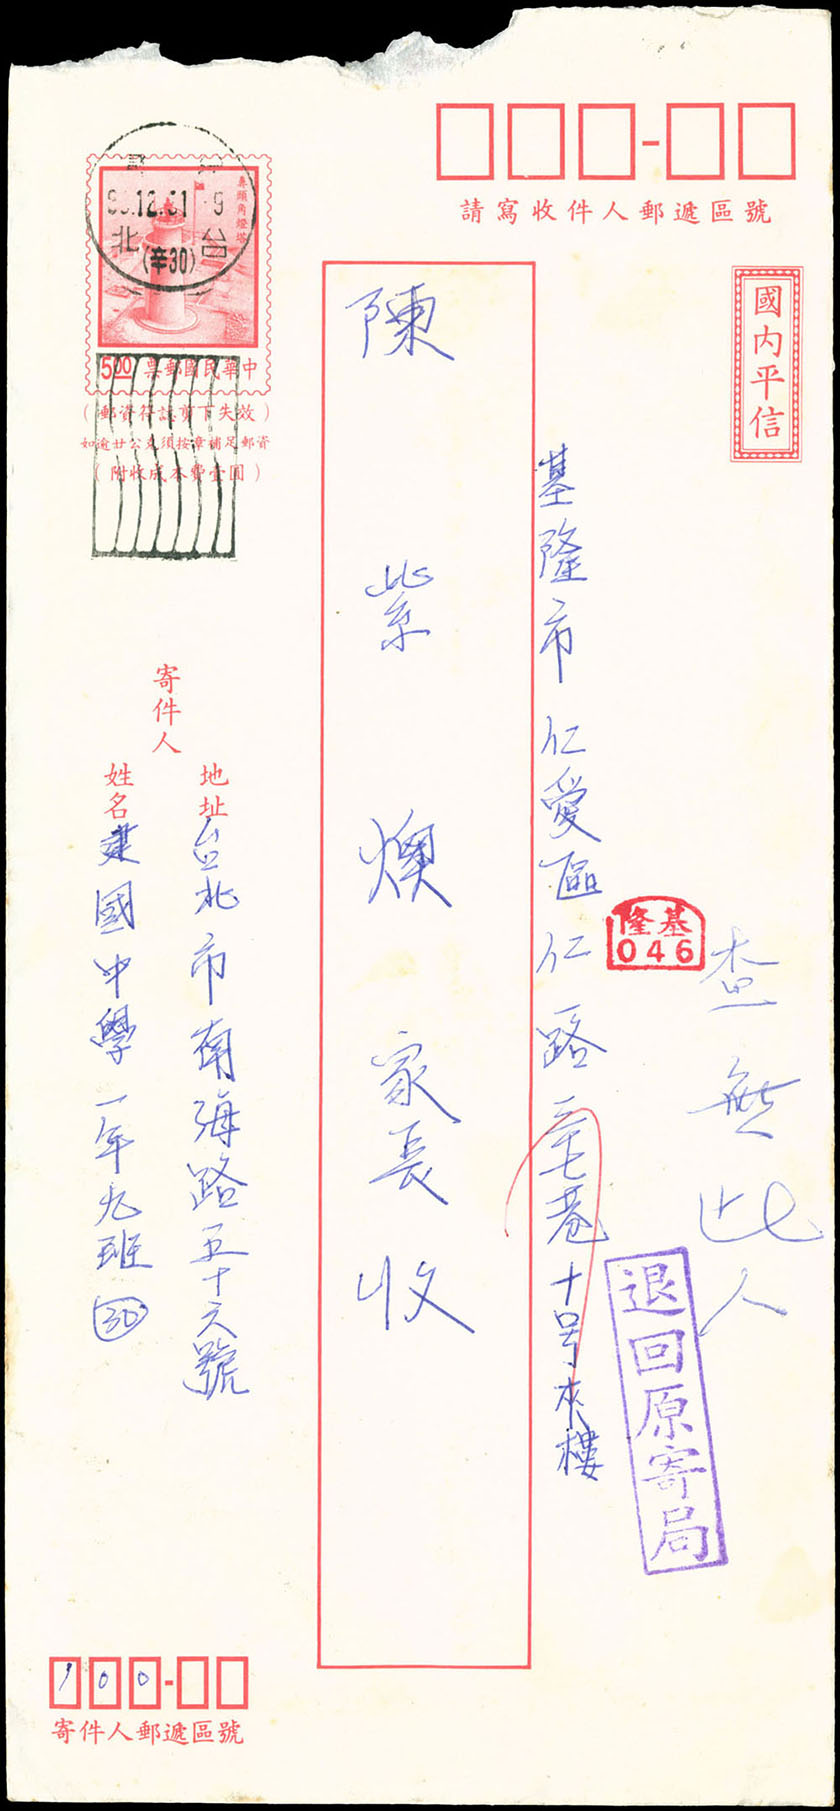 請寫收件人郵遞區號
國內平信
查無此人
退回原寄局
基隆
046
基隆市仁愛區仁一路二三七巷十号夾樓
陳紫燠家長收
鼻頭角燈塔
12.31.9
台北
(辛30)
5.00 票郵國民華中
(郵資符誌剪下失效)
如逾廿公克須按章補足郵資
(附收成本費壹圓)
寄件人
地址
台北市南海路五十六號
姓名
建國中學一年九班 30
100-
寄件人郵遞區號